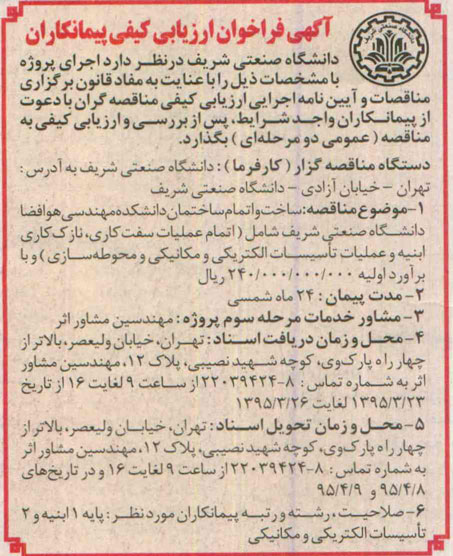 آگهی فراخوان ارزیابی کیفی پیمانکاران
دانشگاه صنعتی شریف درنظر دارد اجرای پروژه
با مشخصات ذیل را با عنایت به مفاد قانون برگزاری
مناقصات و آیین نامه اجرایی ارزیابی کیفی مناقصه گران با دعوت
از پیمانکاران واجد شرایط، پس از بررسی و ارزیابی کیفی به
مناقصه (عمومی دو مرحله‌ای) بگذارد.
دستگاه مناقصه گزار (کارفرما): دانشگاه صنعتی شریف به آدرس:
تهران - خیابان آزادی - دانشگاه صنعتی شریف
۱-موضوع مناقصه: ساخت و اتمام ساختمان دانشکده مهندسی هوافضا
دانشگاه صنعتی شریف شامل (اتمام عملیات سفت کاری، نازک کاری
ابنیه و عملیات تأسیسات الکتریکی و مکانیکی و محوطه‌سازی) و با
برآورد اولیه ۲۴۰/۰۰۰/۰۰۰/۰۰۰ ریال
۲- مدت پیمان: ۲۴ ماه شمسی
۳- مشاور خدمات مرحله سوم پروژه: مهندسین مشاور اثر
۴- محل و زمان دریافت اسناد: تهران، خیابان ولیعصر، بالاتر از
چهارراه پارک‌وی، کوچه شهید نصیبی، پلاک ۱۲، مهندسین مشاور
اثر به شماره تماس: ۸-۲۲۰۳۹۴۲۴ از ساعت ۹ لغایت ۱۶ از تاریخ
۱۳۹۵/۳/۲۳ لغایت ۱۳۹۵/۳/۲۶
۵- محل و زمان تحویل اسناد: تهران، خیابان ولیعصر، بالاتر از
چهارراه پارک‌وی، کوچه شهید نصیبی، پلاک ۱۲، مهندسین مشاور اثر
به شماره تماس: ۸-۲۲۰۳۹۴۲۴ از ساعت ۹ لغایت ۱۶ و در تاریخ‌های
۹۵/۴/۸ و ۹۵/۴/۹
۶- صلاحیت، رشته و رتبه پیمانکاران مورد نظر: پایه ۱ ابنیه و ۲
تأسیسات الکتریکی و مکانیکی